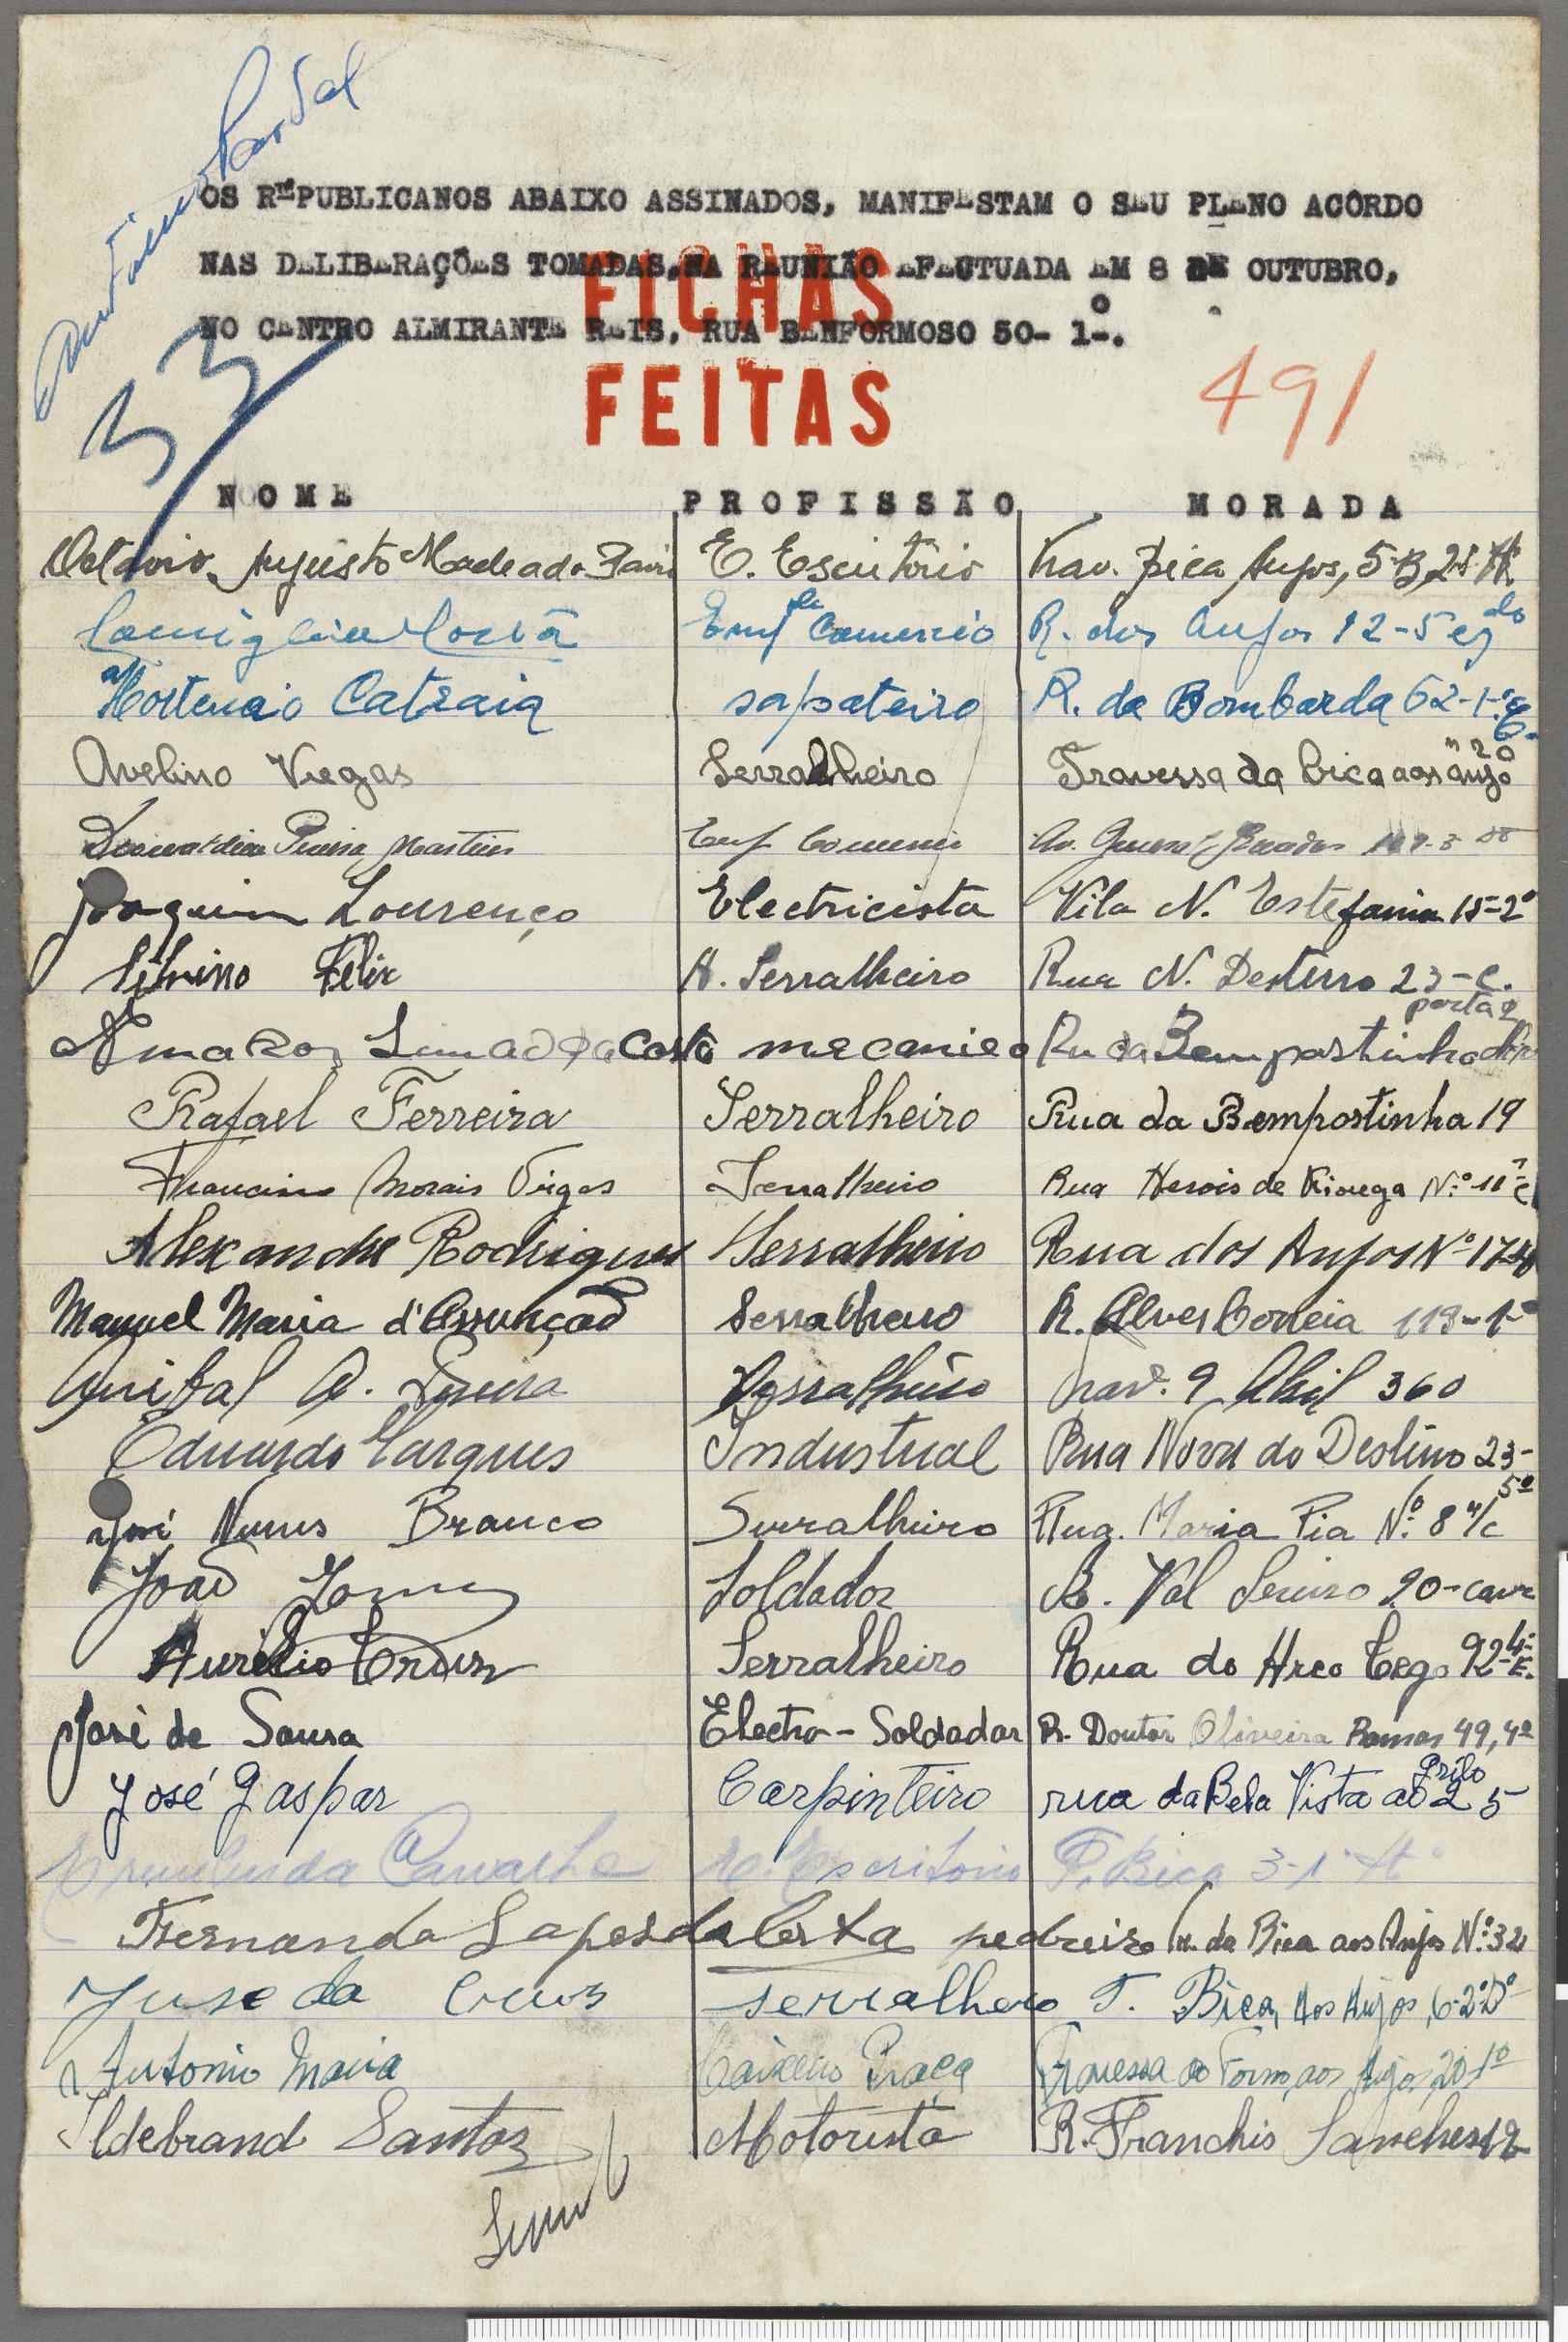 OS REPUBLICANOS ABAIXO ASSINADOS, MANIFESTAM O SEU PLENO ACÔRDO
NAS DELIBERAÇÕES TOMADAS, NA REUNIÃO EFECTUADA EM 8 DE OUTUBRO,
NO CENTRO ALMIRANTE REIS, RUA BENFORMOSO 50- 1º.
FICHAS
FEITAS
491
33
NOME PROFISSÃO MORADA
Octavio Augusto E. Escritório Trav. Bica Anjos, 5-B,
Costa Emp de Comercio R. dos Anjos 12-5 esqdo
Hortencio Catraia sapateiro R. da Bombarda 62-1º E.
Avelino Viegas Serralheiro Travessa da bica aos anjo nº 20
Martins Emp Comercio Av. General
Joaquim Lourenço Electricista Vila N. Estefania 15-2º
Silvino Felix A. Serralheiro Rua N. Desterro 23-C.
Amaro Lima da Costa mecanico Ru da Bempostinha porta 2
Rafael Ferreira Serralheiro Rua da Bempostinha 19
Francisco Morais Vigas Serralheiro Rua Herois de Kionga Nº 11
Alexandre Rodrigues Serralheiro Rua dos Anjos Nº
Manuel Maria d'Assunção Serralheiro R. Alves Correia 113-1º
Anibal A. Serralheiro Trav. 9 Abril 360
Eduardo Marques Industrial Rua Nova do Destino 23-5º
José Nunes Branco Serralheiro Rua Maria Pia Nº 8 r/c
João Gomes Soldador R. Val Sereno 20-cave
Aurélio Cruz Serralheiro Rua do Arco Cego 92-4º E.
José de Sousa Electro-Soldador R. Doutor Oliveira Ramos 49, 4º
José Gaspar Carpinteiro rua da Bela Vista ao grilo 25
Ermelinda Carvalho E. Escritorio T. Bica 3-1º
Fernando Lopes da Costa pedreiro tr. da Bica aos Anjos Nº 32
Jose da Cruz serralhero T. Bica, Aos Anjos, 6-2º Dº
Antonio Maria Caixeiro Praça Travessa do Forno, aos Anjos, 20 1º
Ildebrand Santos Motorista R. Franchis Sanches 12